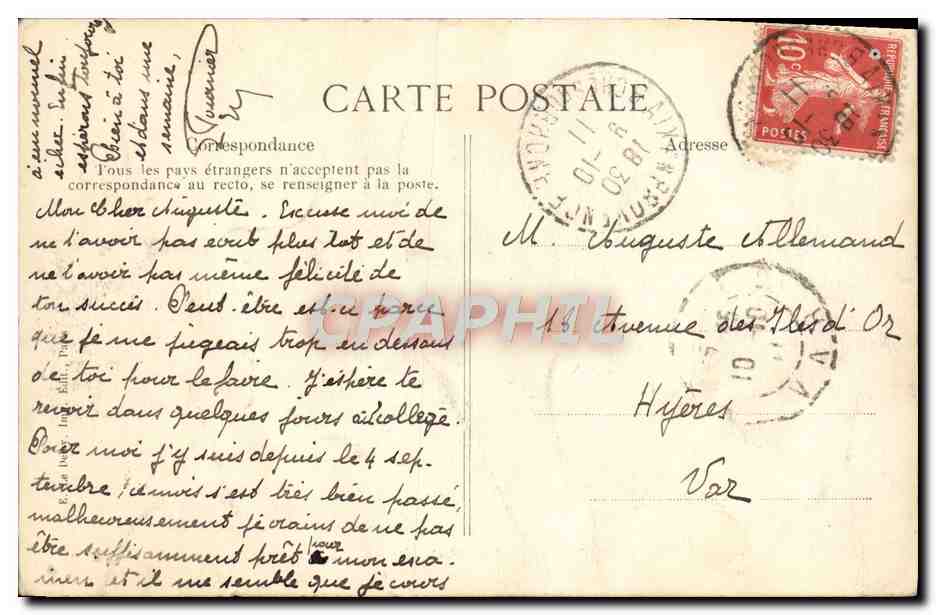 CARTE POSTALE
Correspondance
Adresse
Tous les pays étrangers n'acceptent pas la
correspondance au recto, se renseigner à la poste.
Mon Cher Auguste. Excuse moi de
ne t'avoir pas écrit plus tot et de
ne t'avoir pas même félicité de
ton succès. Peut-être est-ce parce
que je me jugeais trop en dessous
de toi pour le faire. J'espère te
revoir dans quelques jours au collège.
Pour moi j'y suis depuis le 4 sep-
tembre; ce mois s'est très bien passé,
malheureusement je crains de ne pas
être suffisamment prêt pour mon exa-
men et il me semble que je cours
à un nouvel
échec. Enfin
espérons toujours
Bien à toi
et dans une
semaine,
M. Auguste Allemand
18 Avenue des Iles d'Or
Hyères
Var
CPAPHIL
REPUBLIQUE FRANÇAISE
10c
POSTES
AIX EN PROVENCE
18 30
9 -10
11
VAR
10